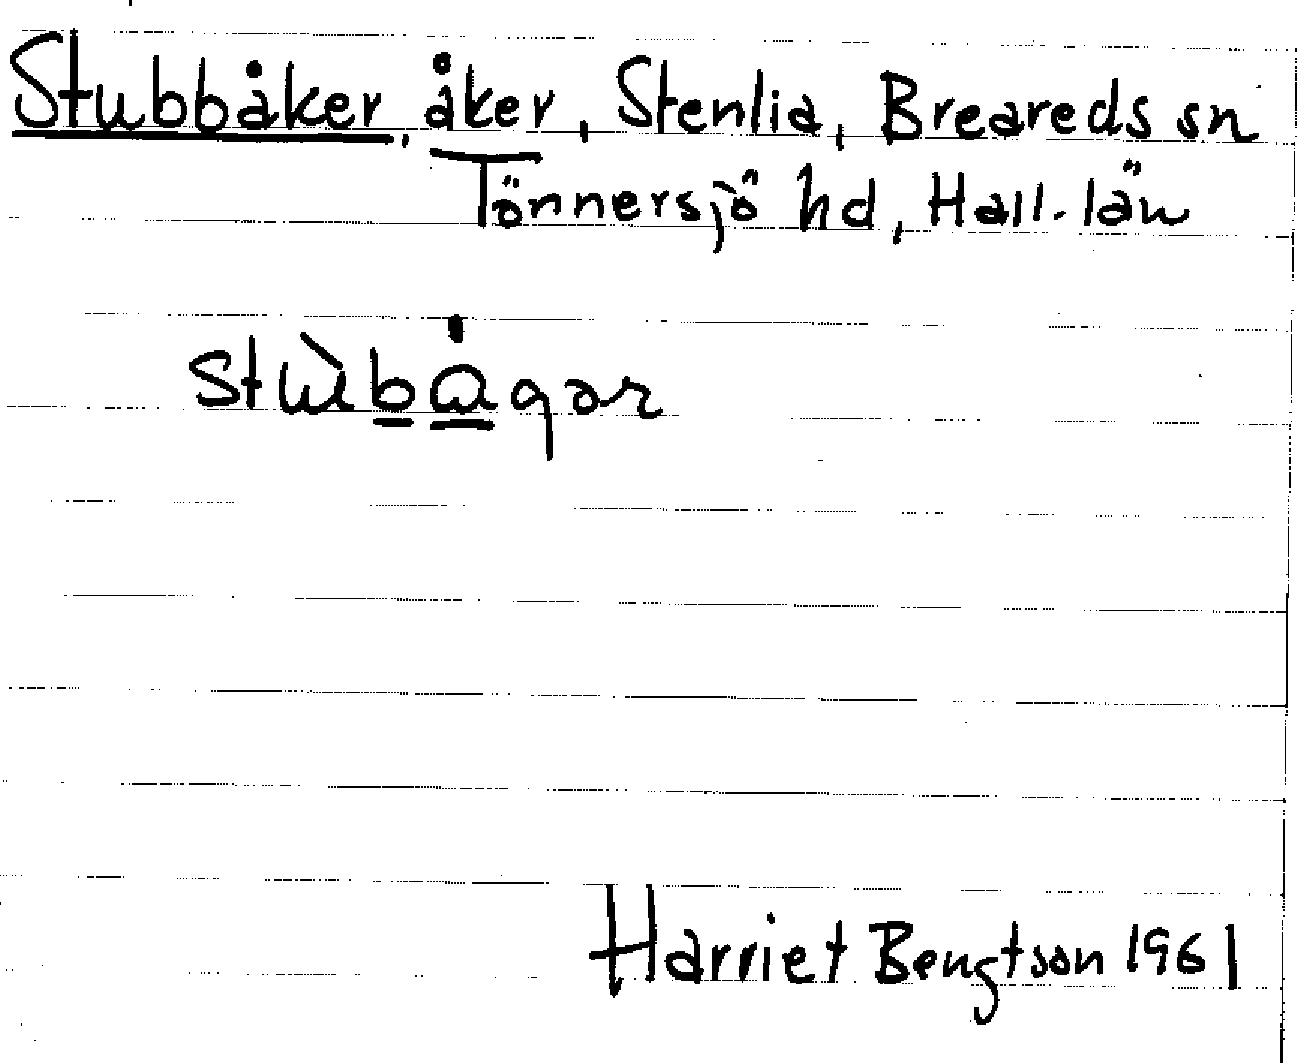 Stubbåker, åker, Stenlia, Breareds sn
Tönnersjö hd, Hall. län
stùbågər
Harriet Bengtson 1961